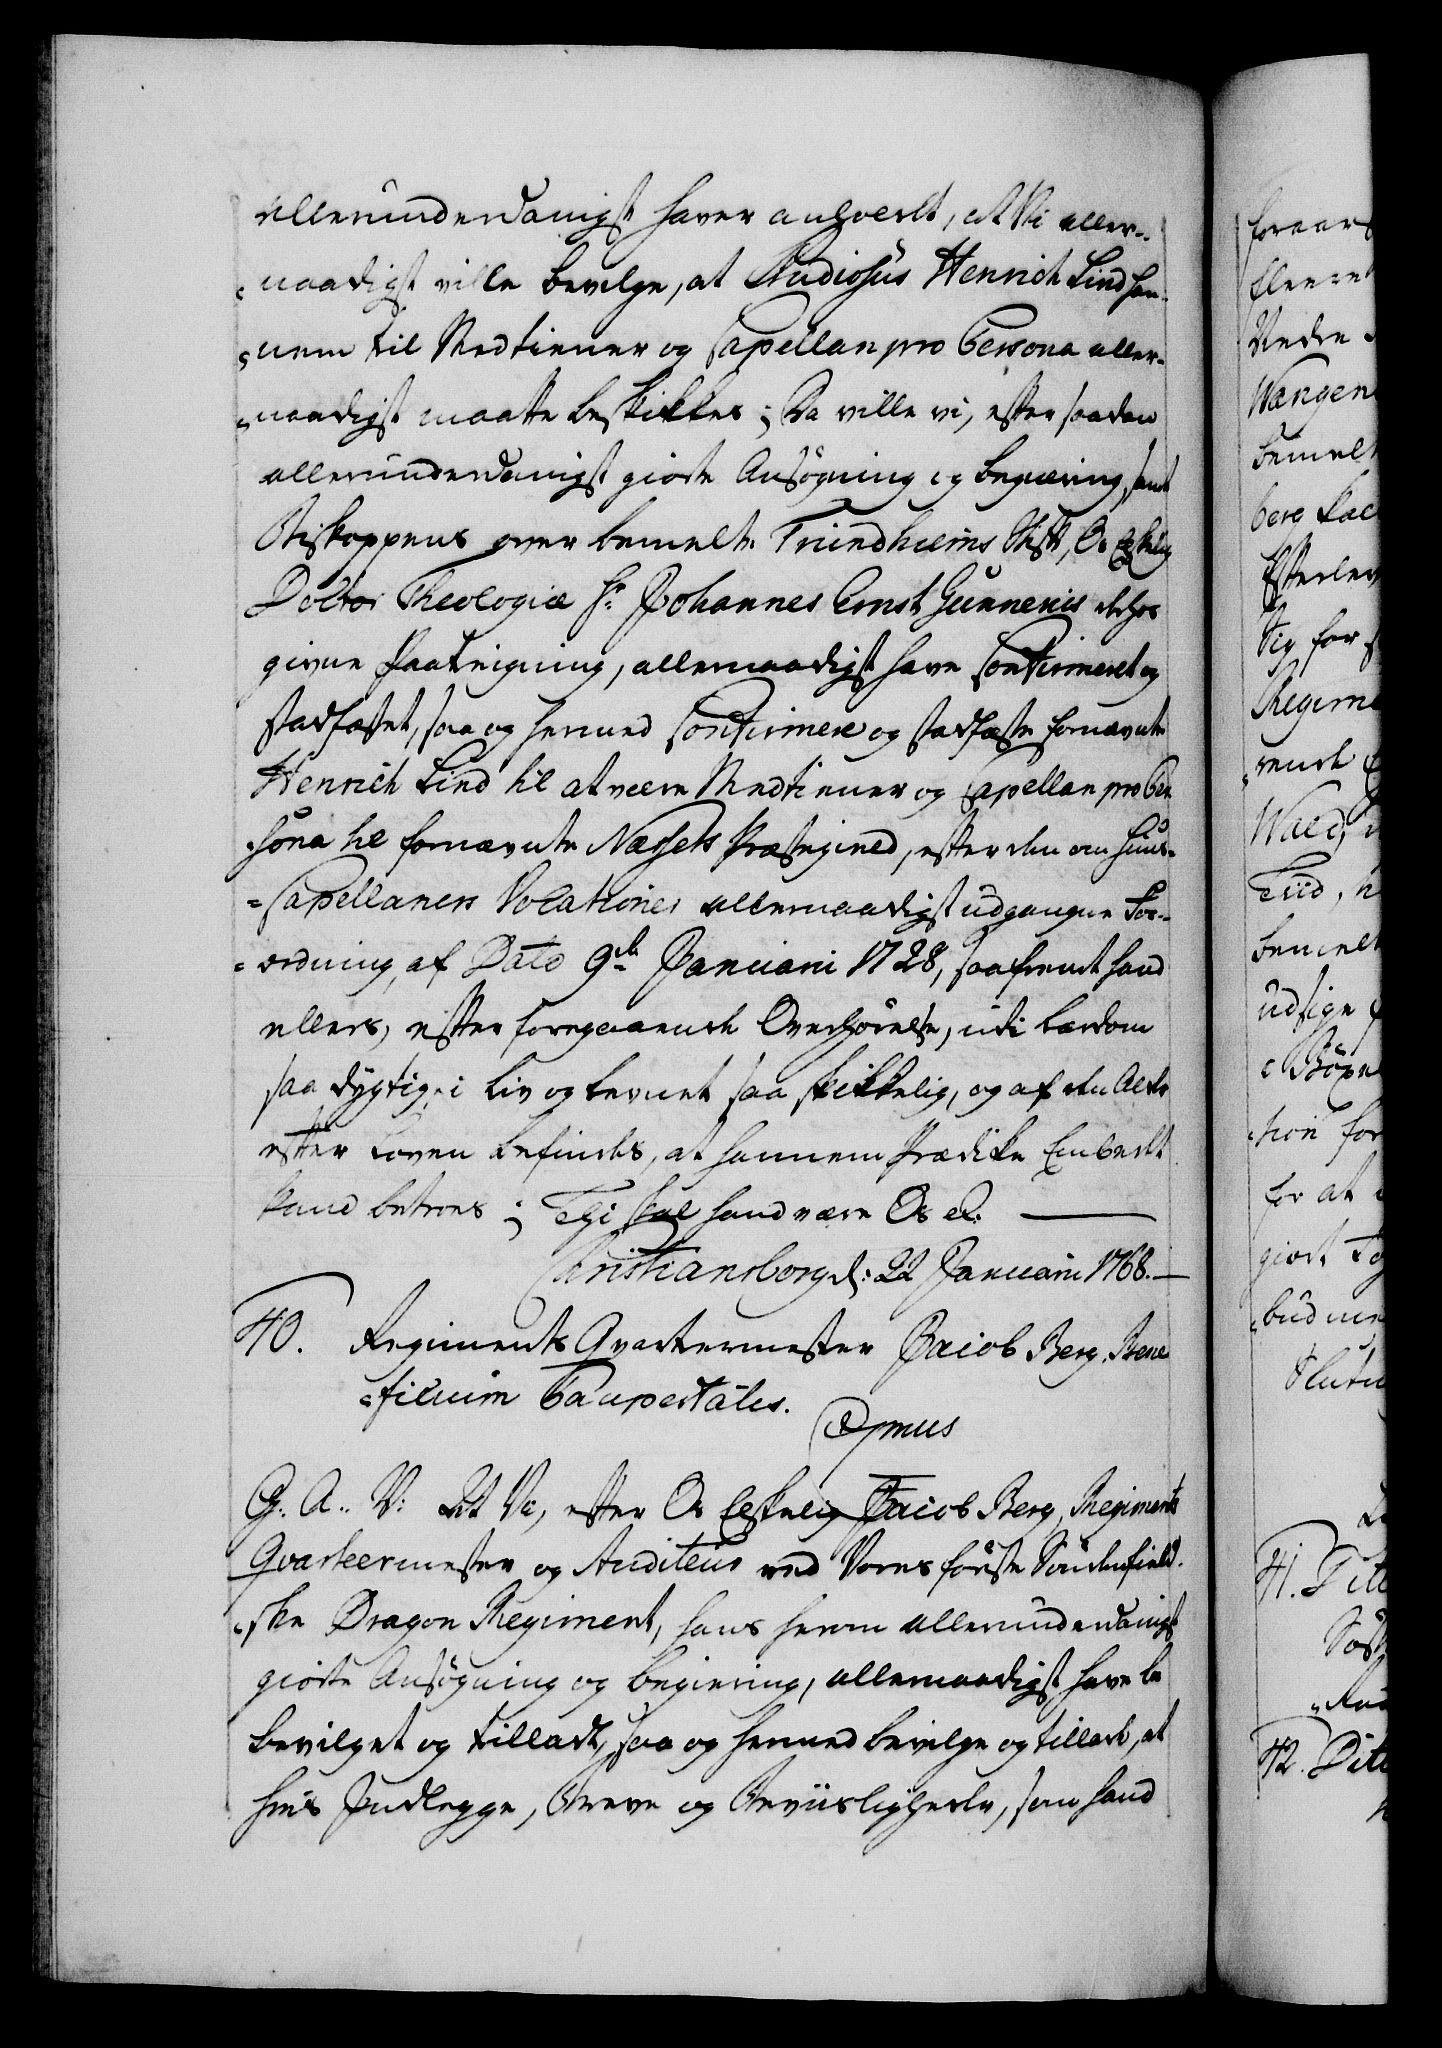 allerunderdanigst haver anholdt, at Vi aller-
naadigst ville bevilge, at Studiosus Henrich Lind han-
nem til Medtiener og Capellan pro Persona aller-
naadigst maatte beskikkes; Da ville vi, efter saadan
allerunderdanigst giorte Ansøgning og begiering, samt
Biskoppens over bemelte Trundhiems Stift, Os Elskelig
Doctor Theologiæ Hr Johannes Ernst Gunnerus derhos
givne Paategning, allernaadigst have Confirmeret og
stadfæstet, saa og hermed Confirmere og stadfæste fornævnte
Henrich Lind til at være Medtiener og Capellan pro Per
sona til fornævnte Næssets Præstegield, efter den om Huus-
Capellaners Vocationer allernaadigst udgangne For-
ordning, af Dato 9de Januarii 1728, saafremt hand
ellers, efter foregaaende Overhørelse, udi Lærdom
saa dygtig, i Liv og Levnet saa skikkelig, og af den Alder
efter Loven befindes, at hannem Prædike Embedet
kand betroes; Thi skal hand være Os &c.
Christiansborg d: 22 Januarii 1768.
40. Regiments Qvarteermester Jacob Berg, Bene
ficium Paupertatis.
G. A. V: At Vi, efter Os Elskelig Jacob Berg, Regiments
Qvarteermester og Auditeur ved Vores første Søndenfield-
ske Dragon Regiment, hans herom allerunderdanigst
giorte Ansøgning og begiering, allernaadigst have be
bevilget og tilladt, saa og hermed bevilge og tillade, at
hvis Indlegge, Breve og Beviisligheder, som hand
foraars
Wangen
bemelt
berg
Sig for
Regime
Tiid, h
bemelt
udsige
for at
giort
bud me
41. Dito
42. Dito